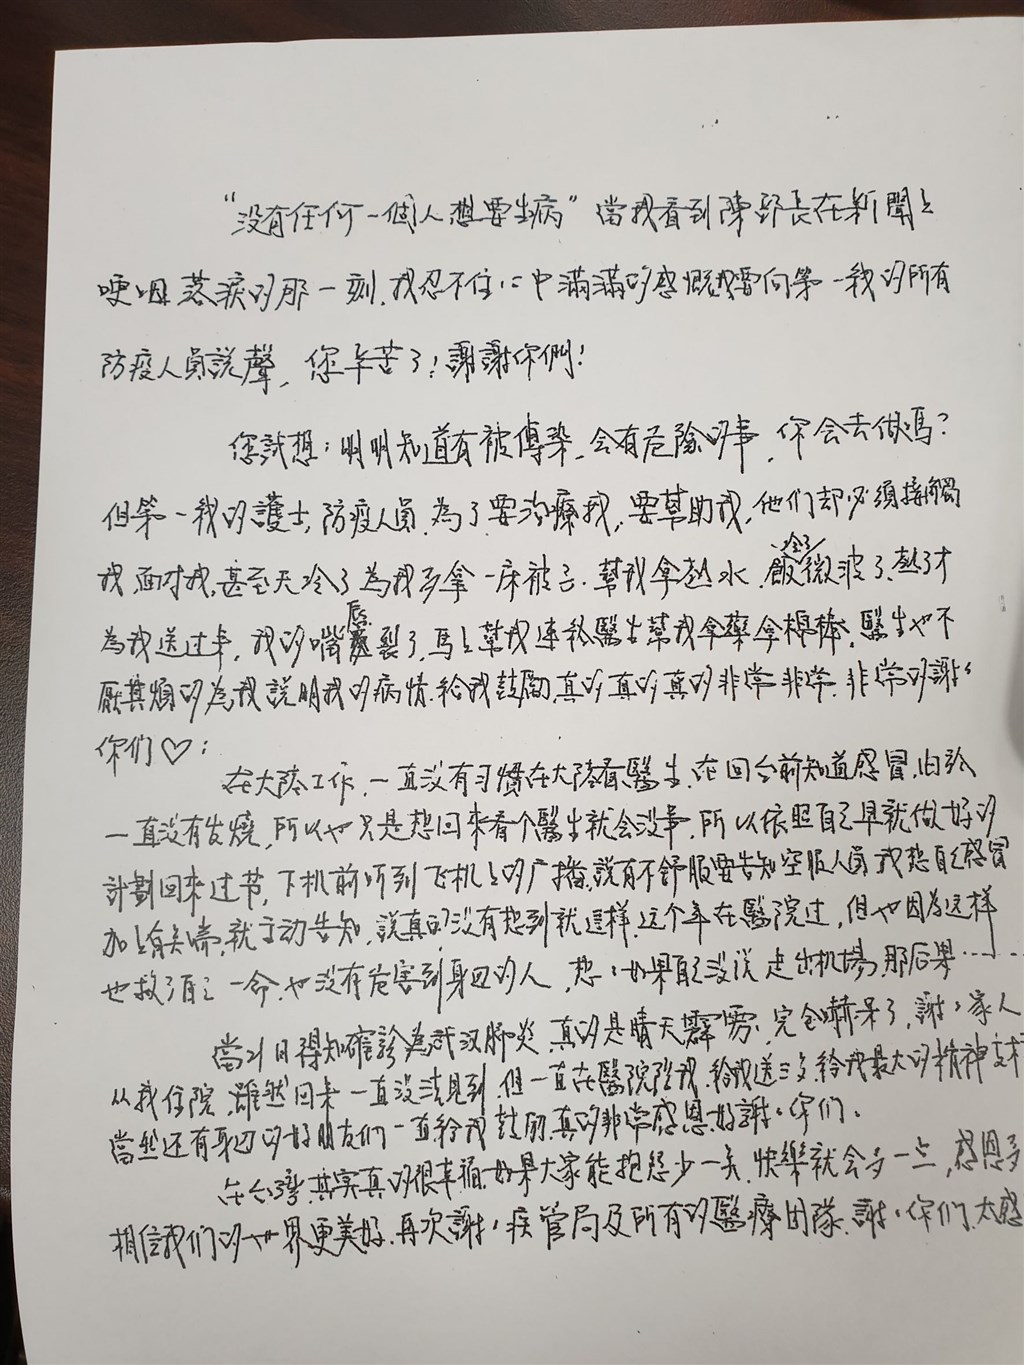 “没有任何一個人想要生病”當我看到陳部長在新聞上
哽咽落淚的那一刻,我忍不住心中滿滿的感慨我要向第一線的所有
防疫人員說聲,您辛苦了!謝謝你們!
您試想:明明知道有被傳染,会有危險的事,你会去做嗎?
但第一線的護士,防疫人員,為了要治療我,要幫助我,他们却必須接觸
我,面对我,甚至天冷了為我多拿一床被子.幫我拿熱水,飯冷了微波了,熱了才
為我送过来,我的嘴唇裂了,馬上幫我連絡醫生幫我拿藥拿棉棒,醫生也不
厭其煩的為我說明我的病情.給我鼓励,真的真的真的非常非常.非常的謝谢
你们♡:
在大陸工作,一直没有习慣在大陸看醫生,在回台前知道感冒,由於
一直没有发燒,所以也只是想回來看个醫生就会没事,所以依照自己早就做好的
計劃回來过节,下机前听到飞机上的广播,說有不舒服要告知空服人員,我想自己感冒
加上有气喘,就主动告知,說真的没有想到就這样,这个年在醫院过,但也因為这样
也救了自己一命,也没有危害到身边的人,想想如果自己没说走出机場,那后果……
當21日得知確診為武汉肺炎,真的是晴天霹靂,完全嚇呆了,謝謝家人
从我住院,雖然回来一直没法見到,但一直在醫院陪我,給我送三多,給我最大的精神支持
當然还有身边的好朋友们一直給我鼓励,真的非常感恩.好謝謝你们.
在台灣,其实真的很幸福.如果大家能抱怨少一点,快樂就会多一点,感恩多
相信我们的世界更美好.再次謝謝疾管局及所有的醫療团隊,謝謝你们,太感